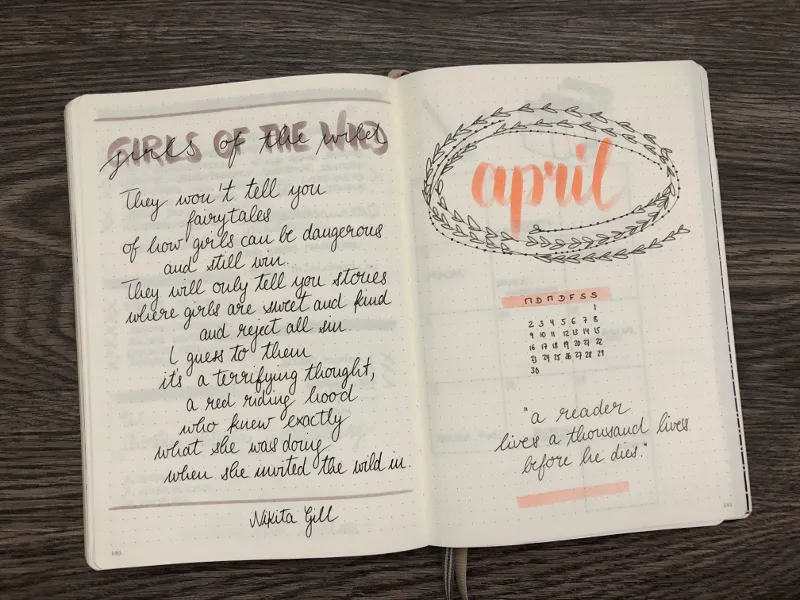 GIRLS OF THE WILD
girls of the wild
They won't tell you
fairytales
of how girls can be dangerous
and still win.
They will only tell you stories
where girls are sweet and kind
and reject all sin.
I guess to them
it's a terrifying thought,
a red riding hood
who knew exactly
what she was doing
when she invited the wild in.
Nikita Gill
april
M D M D F S S
1
2 3 4 5 6 7 8
9 10 11 12 13 14 15
16 17 18 19 20 21 22
23 24 25 26 27 28 29
30
"a reader
lives a thousand lives
before he dies."